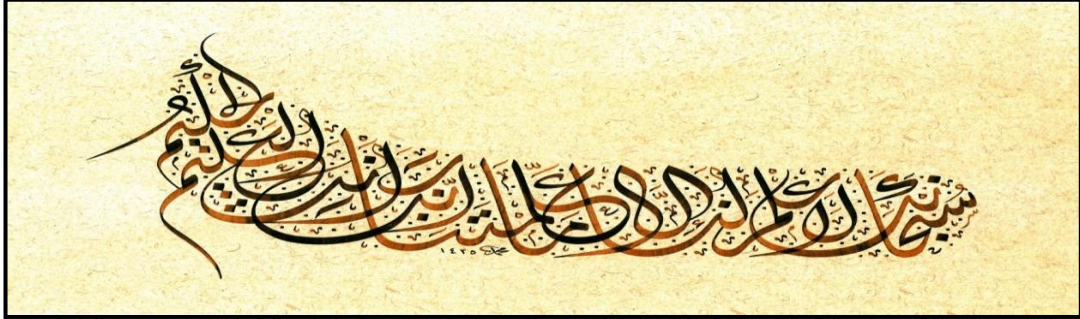 سُبْحَانَكَ لَا عِلْمَ لَنَا إِلَّا مَا عَلَّمْتَنَا إِنَّكَ أَنْتَ الْعَلِيمُ الْحَكِيمُ
١٤٣٥